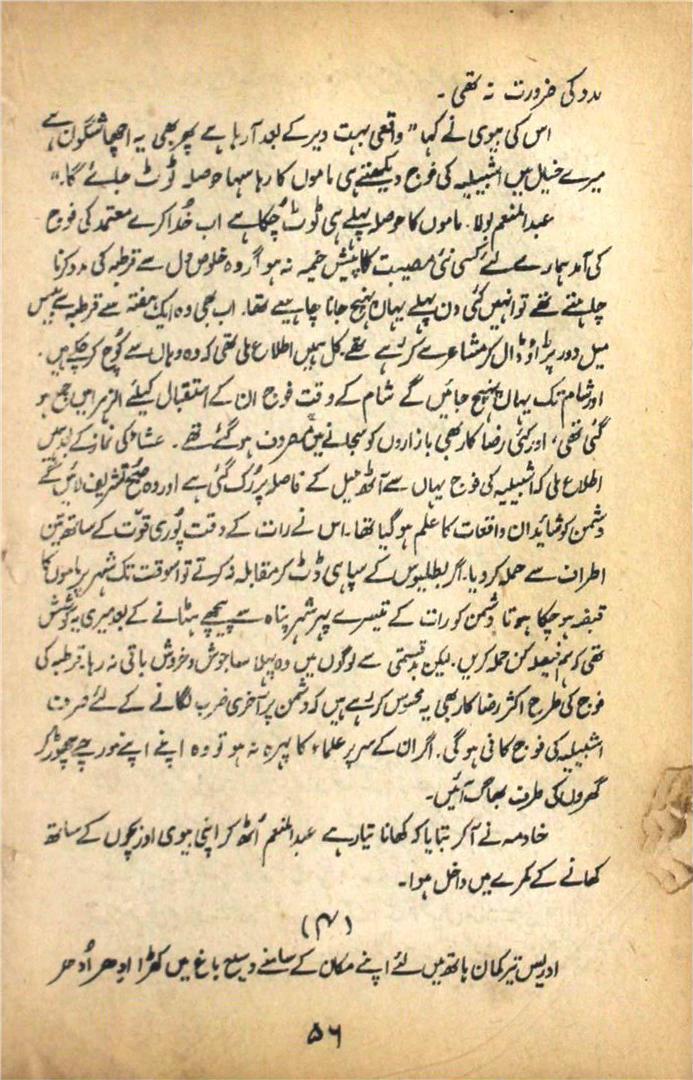 مدد کی ضرورت نہ تھی ۔
اس کی بیوی نے کہا " واقعی بہت دیر کے بعد آرہا ہے پھر بھی یہ اچھا شگون ہے
میرے خیال میں اشبیلیہ کی فوج دیکھتے ہی ماموں کا رہا سہا حوصلہ ٹوٹ جائے گا۔"
عبدالمنعم بولا۔ ماموں کا حوصلہ پہلے ہی ٹوٹ چکا ہے اب خدا کرے معتمد کی فوج
کی آمد ہمارے لئے کسی نئی مصیبت کا پیش خیمہ نہ ہو اگر وہ خلوص دل سے قرطبہ کی مدد کرنا
چاہتے تھے تو انہیں کئی دن پہلے یہاں پہنچ جانا چاہیے تھا۔ اب بھی وہ ایک ہفتہ سے قرطبہ سے بیس
میل دور پڑاؤ ڈال کر مشاعرے کر رہے تھے کل ہمیں اطلاع ملی تھی کہ وہ وہاں سے کوچ کر چکے ہیں ۔
اور شام تک یہاں پہنچ جائیں گے شام کے وقت فوج ان کے استقبال کیلئے الزہرا میں جمع ہو
گئی تھی ، اور کئی رضا کار بھی بازاروں کو سجانے میں مصروف ہو گئے تھے ۔ عشاء کی نماز کے بعد ہمیں
اطلاع ملی کہ اشبیلیہ کی فوج یہاں سے آٹھ میل کے فاصلہ پر رک گئی ہے اور وہ صبح تشریف لائیں گے
دشمن کو شاید ان واقعات کا علم ہو گیا تھا۔ اس نے رات کے وقت پوری قوت کے ساتھ تین
اطراف سے حملہ کر دیا۔ اگر بطلیوس کے سپاہی ڈٹ کر مقابلہ نہ کرتے تو اسوقت تک شہر پر ماموں کا
قبضہ ہو چکا ہوتا دشمن کو رات کے تیسرے پہر شہر پناہ سے پیچھے ہٹانے کے بعد میری یہ کوشش
تھی کہ ہم فیصلہ کن حملہ کریں۔ لیکن بدقسمتی سے لوگوں میں وہ پہلا سا جوش و خروش باقی نہ رہا۔ قرطبہ کی
فوج کی طرح اکثر رضا کار بھی یہ محسوس کر رہے ہیں کہ دشمن پر آخری ضرب لگانے کے لئے صرف
اشبیلیہ کی فوج کافی ہوگی۔ اگر ان کے سر پر علماء کا پہرہ نہ ہو تو وہ اپنے اپنے مورچے چھوڑ کر
گھروں کی طرف بھاگ آئیں۔
خادمہ نے آکر بتایا کہ کھانا تیار ہے عبدالمنعم اُٹھ کر اپنی بیوی اور بچوں کے ساتھ
کھانے کے کمرے میں داخل ہوا۔
(۴)
ادریس تیر کمان ہاتھ میں لئے اپنے مکان کے سامنے وسیع باغ میں کھڑا اِدھر اُدھر
۵۶